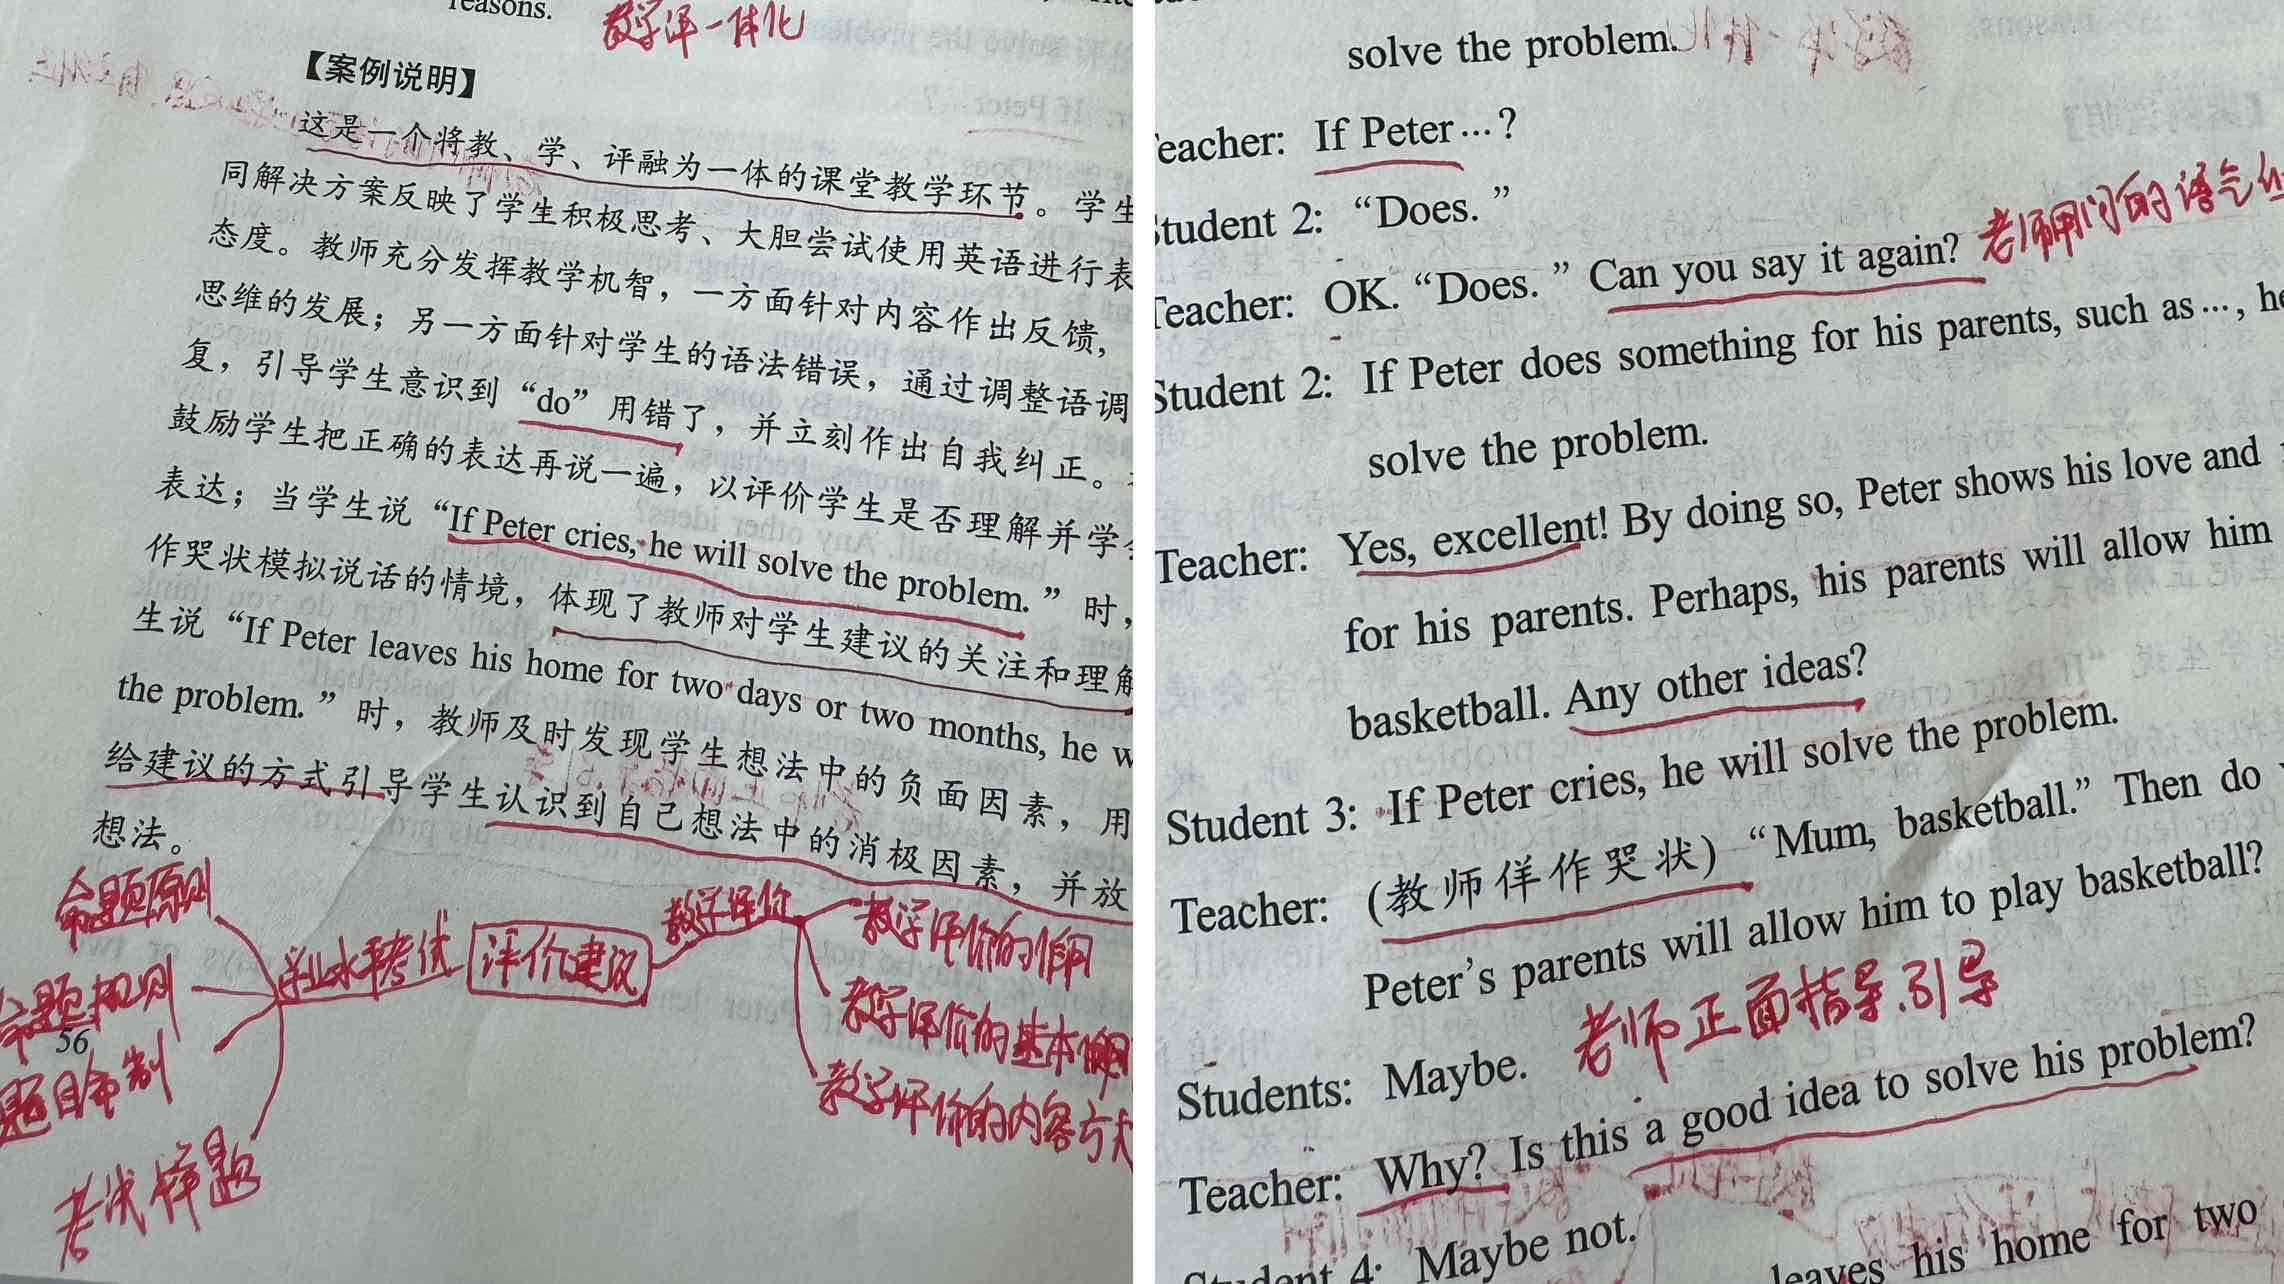 reasons.
教学评一体化
【案例说明】
这是一个将教、学、评融为一体的课堂教学环节。学生
同解决方案反映了学生积极思考、大胆尝试使用英语进行表
态度。教师充分发挥教学机智，一方面针对内容作出反馈，
思维的发展；另一方面针对学生的语法错误，通过调整语调
复，引导学生意识到“do”用错了，并立刻作出自我纠正。
鼓励学生把正确的表达再说一遍，以评价学生是否理解并学
表达；当学生说“If Peter cries, he will solve the problem.”时，
作哭状模拟说话的情境，体现了教师对学生建议的关注和理解
生说“If Peter leaves his home for two days or two months, he w
the problem.”时，教师及时发现学生想法中的负面因素，用
给建议的方式引导学生认识到自己想法中的消极因素，并放
想法。
命题原则
命题规则
56
题目命制
考试样题
学业水平考试
评价建议
教学评价
教学评价的作用
教学评价的基本
教学评价的内容与
solve the problem.
eacher: If Peter…?
Student 2: “Does.”
Teacher: OK. “Does.” Can you say it again?
老师用问的语气
Student 2: If Peter does something for his parents, such as…, he
solve the problem.
Teacher: Yes, excellent! By doing so, Peter shows his love and
for his parents. Perhaps, his parents will allow him
basketball. Any other ideas?
Student 3: If Peter cries, he will solve the problem.
Teacher: (教师佯作哭状) “Mum, basketball.” Then do
Peter’s parents will allow him to play basketball?
老师正面指导.引导
Students: Maybe.
Teacher: Why? Is this a good idea to solve his problem?
Student 4: Maybe not.
leaves his home for two